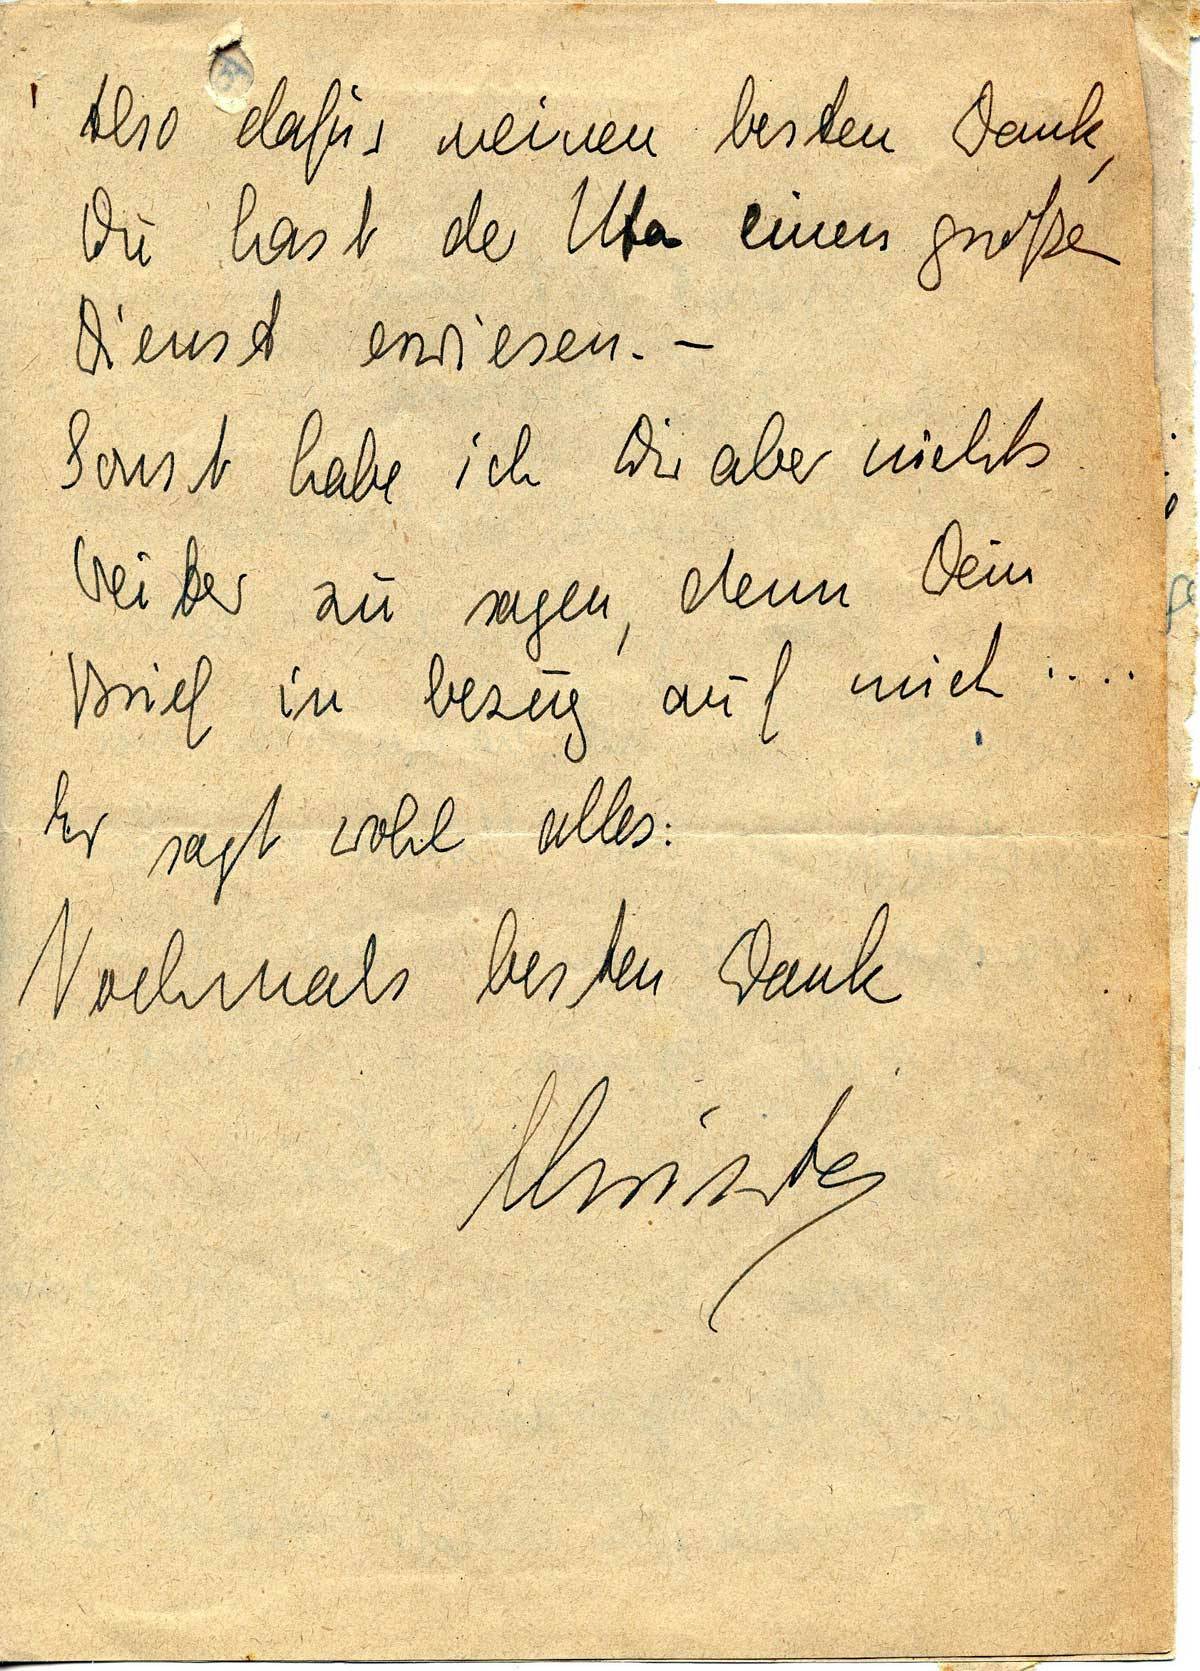 Also dafür meinen besten Dank,
Du hast der Uta einen große
Dienst erwiesen. –
Sonst habe ich Dir aber nichts
weiter zu sagen, denn Dein
Brief in bezug auf mich ....
Er sagt wohl alles.
Nochmals besten Dank